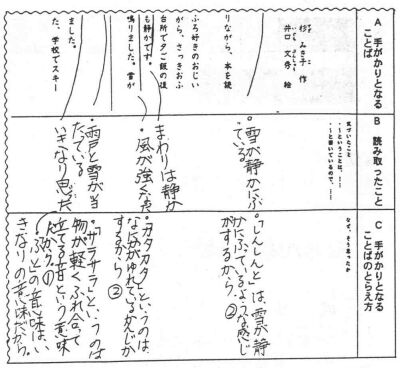 A 手がかりとなる
ことば
杉 みき子 作
井口 文秀 絵
りながら、本を読
ふろ好きのおじい
がら、さっきおふ
台所で夕ご飯の後
も静かです。
鳴りました。雪が
ました。
た、学校でスキー
B 読み取ったこと
気づいたこと
・〜ということは、……
・〜と書いているので、……
・雪が静かにふっ
ている
まわりは静か
・風が強くなった
・雨戸と雪が当
たっている
いきなり思った
C 手がかりとなる
ことばのとらえ方
なぜ、そう思ったか
・「しんしんと」は、雪が静
かにふっているような感じ
がするから。②
・「カタカタ」というのは、
なにかがゆれているかんじが
するから ②
・「サラサラ」というのは
物が軽くふれ合って
立てる音という意味
だから。①
・「ふと」の意味は、い
きなりの意味だから。